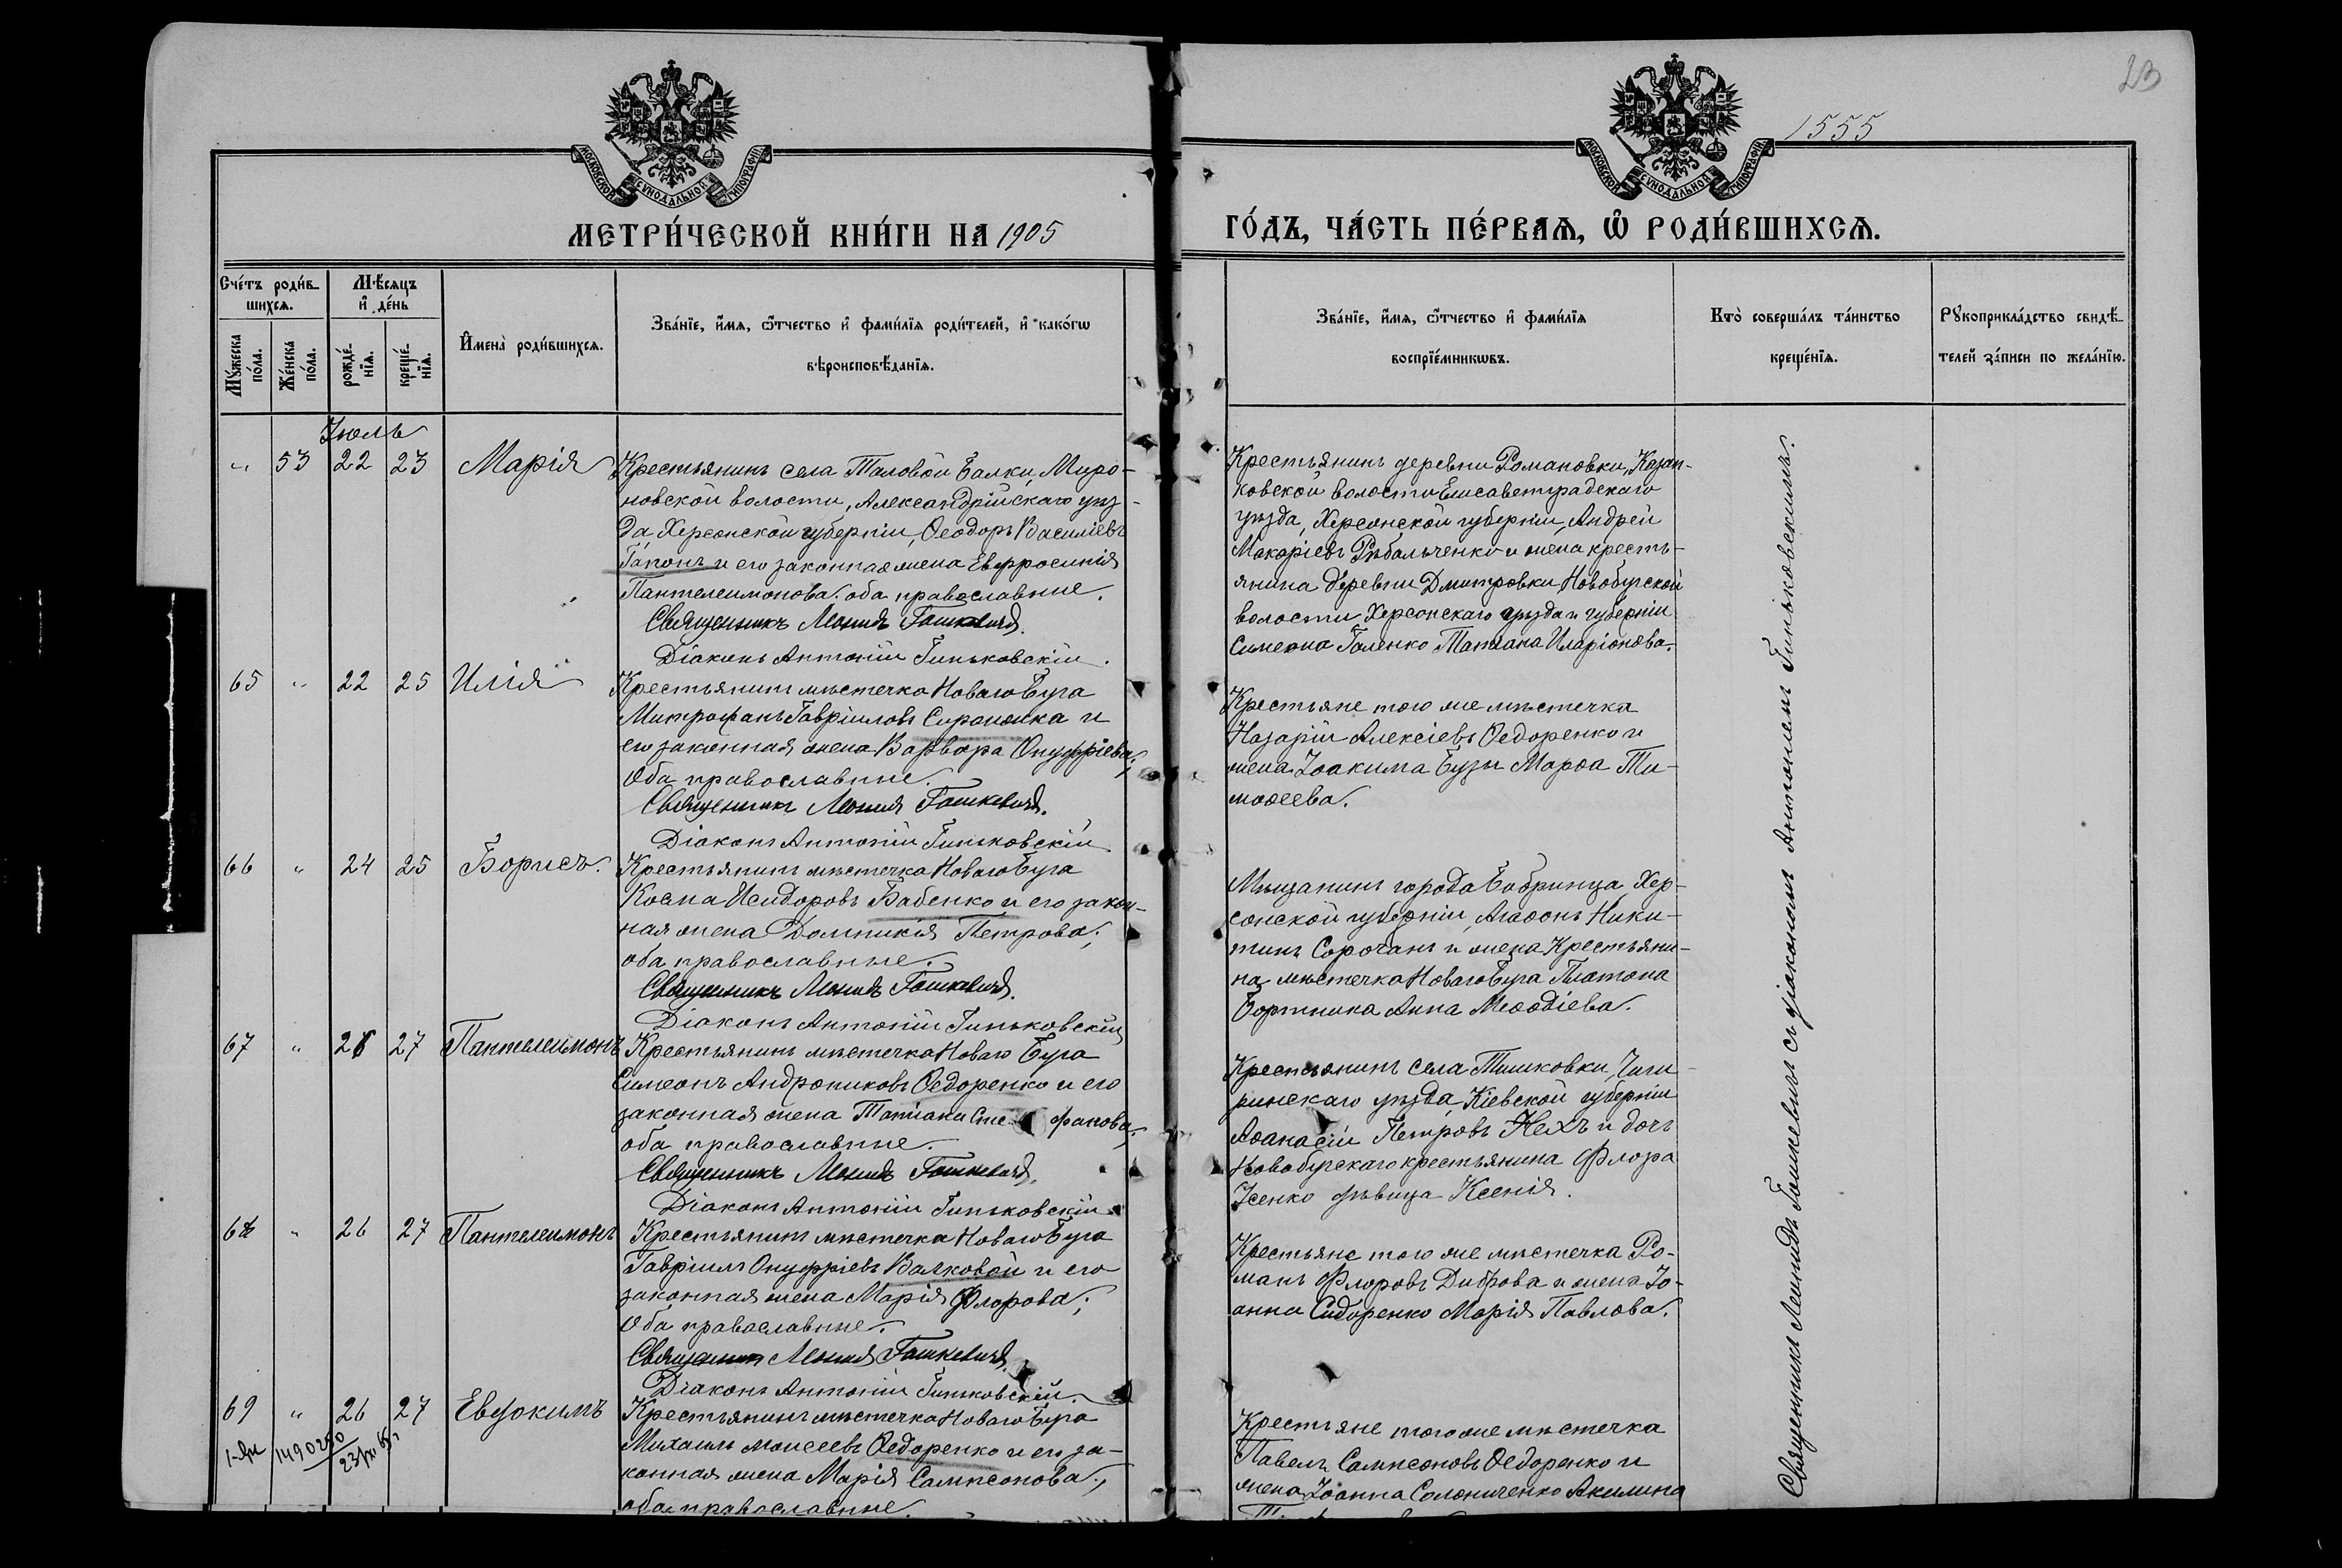 23
1555
МОСКОВСКОЙ СѴНОДАЛЬНОЙ ТИПОГРАФІИ
МОСКОВСКОЙ СѴНОДАЛЬНОЙ ТИПОГРАФІИ
МЕТРИ́ЧЕСКОЙ КНИ́ГИ НА 1905
ГО́ДЪ, ЧА́СТЬ ПЕ́РВАѦ, Ѡ҆ РОДИ́ВШИХСѦ.
Сче́тъ роди́в-
шихсѧ.
Мѣ́сѧцъ
и҆ де́нь
Мꙋ́жеска по́ла.
Же́нска по́ла.
рожде́-
нїѧ.
креще́-
нїѧ.
И҆мена̀ роди́вшихсѧ.
Зва́нїе, и҆́мѧ, ѻ҆́тчество и҆ фами́лїѧ роди́телей, и҆ како́гѡ
вѣроисповѣ́данїѧ.
Зва́нїе, и҆́мѧ, ѻ҆́тчество и҆ фами́лїѧ
воспрїе́мникѡвъ.
Кто̀ соверша́лъ та́инство
креще́нїѧ.
Рꙋкоприкла́дство свидѣ́-
телей за́писи по жела́нїю.
Іюль
" 53 22 23 Марія
Крестьянинъ села Таловой Балки, Миро-
новской волости, Александрійскаго уѣз-
да, Херсонской губерніи, Ѳеодоръ Василіевъ
Гапонъ и его законная жена Евфросинія
Пантелеимонова. оба православные.
Священникъ Леонидъ Гошкевичъ.
Діаконъ Антоній Гиньковскій.
Крестьянинъ деревни Романовки, Казан-
ковской волости Елисаветградскаго
уѣзда, Херсонской губерніи, Андрей
Макаріевъ Рыбальченко и жена кресть-
янина деревни Дмитровки Новобугской
волости Херсонскаго уѣзда и губерніи
Симеона Галенко Татіана Иларіонова.
65 " 22 25 Илія
Крестьянинъ мѣстечка Новаго Буга
Митрофанъ Гавріиловъ Сиротюка и
его законная жена Варвара Онуфріева;
Оба православные.
Священникъ Леонидъ Гошкевичъ.
Діаконъ Антоній Гиньковскій
Крестьяне того же мѣстечка
Назарій Алексіевъ Ѳедоренко и
жена Іоакима Бузы Марѳа Ти-
моѳеева.
66 " 24 25 Борисъ.
Крестьянинъ мѣстечка Новаго Буга
Косма Исидоровъ Бабенко и его закон-
ная жена Домникія Петрова;
оба православные.
Священникъ Леонидъ Гошкевичъ.
Діаконъ Антоній Гиньковскій
Мѣщанинъ города Бобринца, Хер-
сонской губерніи, Агаѳонъ Ники-
тинъ Сорочанъ и жена Крестьяни-
на мѣстечка Новаго Буга Платона
Бортника Анна Меѳодіева.
67 " 27 Пантелеимонъ
Крестьянинъ мѣстечка Новаго Буга
Симеонъ Андрониковъ Ѳедоренко и его
законная жена Татіана Сте-фанова;
оба православные.
Священникъ Леонидъ Гошкевичъ.
Діаконъ Антоній Гиньковскій
Крестьянинъ села Тишковки, Чиги-
ринскаго уѣзда, Кіевской губерніи
Аѳанасій Петровъ Нехъ и дочь
Новобугскаго крестьянина Флора
Усенко дѣвица Ксенія.
68 " 26 27 Пантелеимонъ
Крестьянинъ мѣстечка Новаго Буга
Гавріилъ Онуфріевъ Валковой и его
законная жена Марія Флорова;
Оба православные.
Священникъ Леонидъ Гошкевичъ.
Діаконъ Антоній Гиньковскій.
Крестьяне того же мѣстечка Ро-
манъ Флоровъ Диброва и жена Іо-
анна Сидоренко Марія Павлова.
69 " 26 27 Евдокимъ
Крестьянинъ мѣстечка Новаго Буга
Михаилъ Моисеевъ Ѳедоренко и его за-
конная жена Марія Сампсонова;
оба православные.
Крестьяне того же мѣстечка
Павелъ Сампсоновъ Ѳедоренко и
жена Іоанна Солониченко Акилина
Священникъ Леонидъ Гошкевичъ съ діакономъ Антоніемъ Гиньковскимъ.